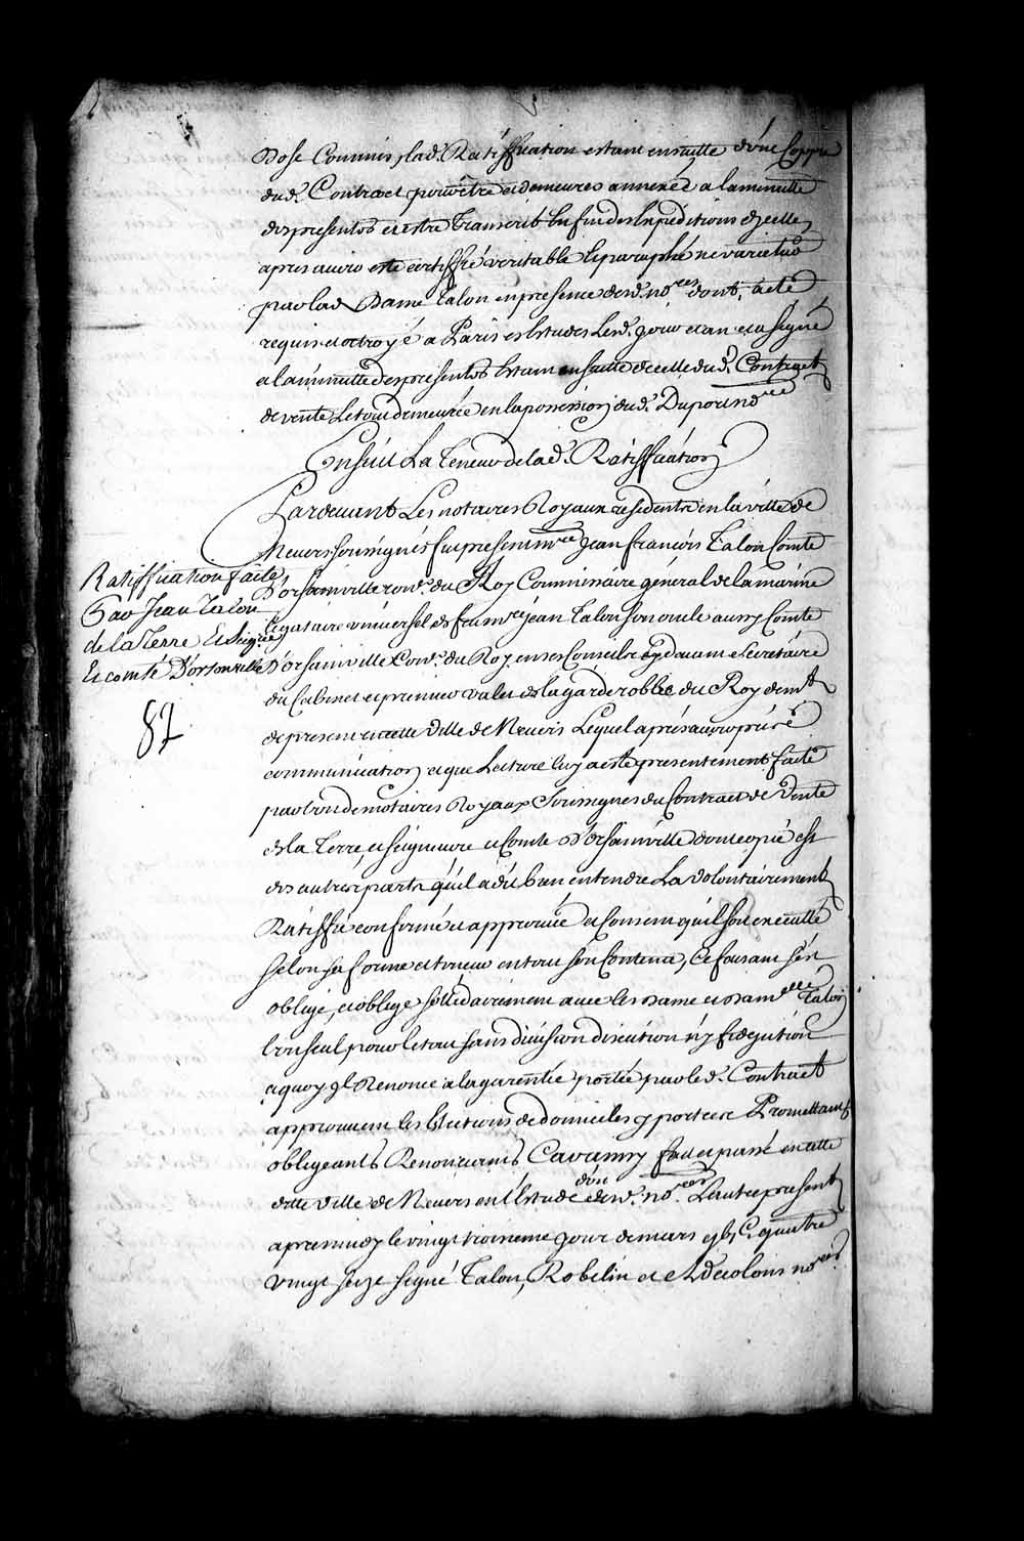 Dose Commis, lad. Ratiffication estant ensuitte d'une Coppie
dud. Contract pour être et demeurer annexéz a la minutte
des presentes et estre transcrit en fin des Expeditions d'jcelle
apres avoir esté certiffié veritable & paraphé ne varietur
par lad. Dame Talon en presence desd. no.res dont, acte
requis et octroyé a Paris es Estudes Lesd. jour et an et a signé
a la minutte des presentes Estant ensuitte de celle dud. Contract
de vente Le tout demeuré en la possession dud. Duport no.re
Ensuit La Teneur de lad. Ratiffication
Pardevant Les notaires Royaux residents en la ville de
Nevers soussignés fut present m.re Jean françois Talon Comte
D'orsainville con.er du Roy Commissaire général de la marine
Ratiffication faite
Par Jean Talon
de la Terre et Seig.rie
Et comté D'orsonville
82
legataire universel de feu m.re jean Talon son oncle aussy Comte
D'orsainville Con.er du Roy en ses Conseils cy devant Secretaire
du Cabinet et premier valet de la garde robbe du Roy dem.t
de present en cette ville de Nevers Lequel aprés avoir pris
communication et que Lecture luy a esté presentement faite
par l'un de notaires Royaux Soussignés du Contract de vente
de la Terre, et seigneurie et Comté d'Orsainville dont copie est
des autres parts qu'il a dit bien entendre La volontairement
Ratiffié confirmé et approuvé et Consent qu'il soit executté
selon sa forme et teneur en tout son Contenu, Ce faisant s'est
obligé, et oblige sollidairement avec les Dame et Dam.elle Talon
l'un seul pour le tout sans division discution n'y fidejution
a quoy jl Renonce a la garentie portée par led. Contract
approuvant les Elections de domiciles y portées Promettant
obligeants Renonceants Cavamsy fait et passé en cette
ditte ville de Nevers en l'Estude d'un desd. no.res Lautre present
apres midy le vingt troisieme jour de mars gbj C. quattre
vingt seize signé Talon, Robelin et Decolons no.res